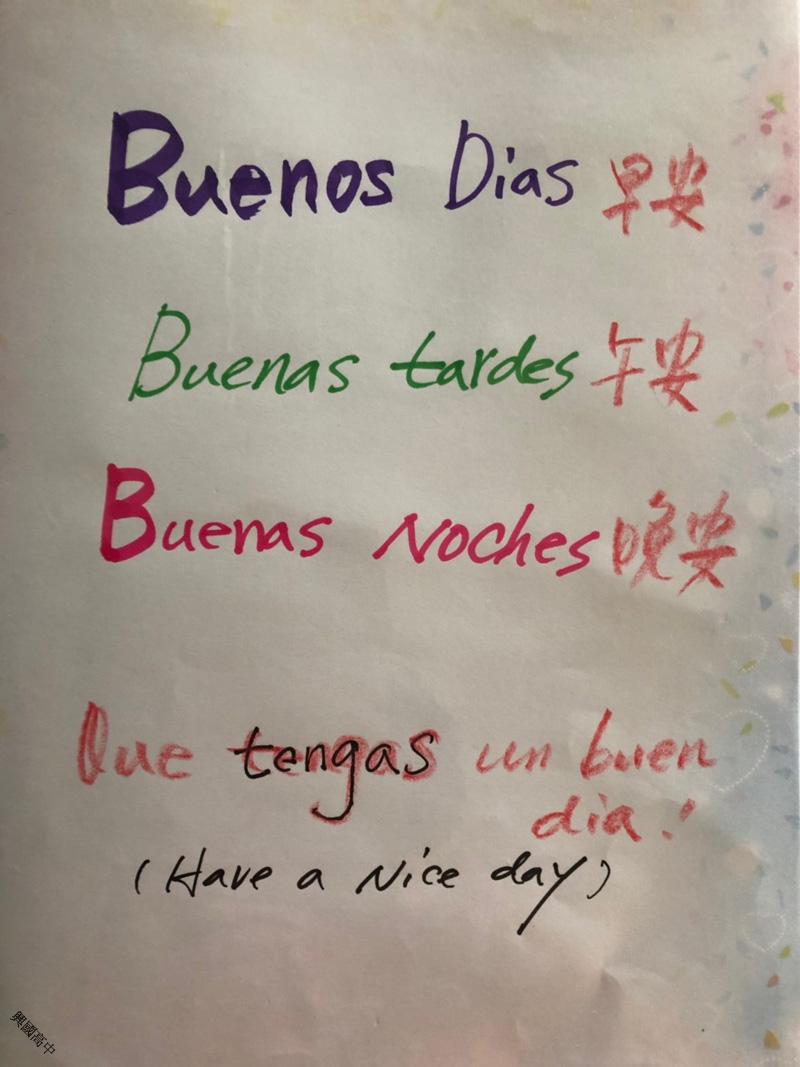 Buenos Dias 早安
Buenas tardes 午安
Buenas Noches 晚安
Que tengas un buen
dia!
(Have a Nice day)
興國高中